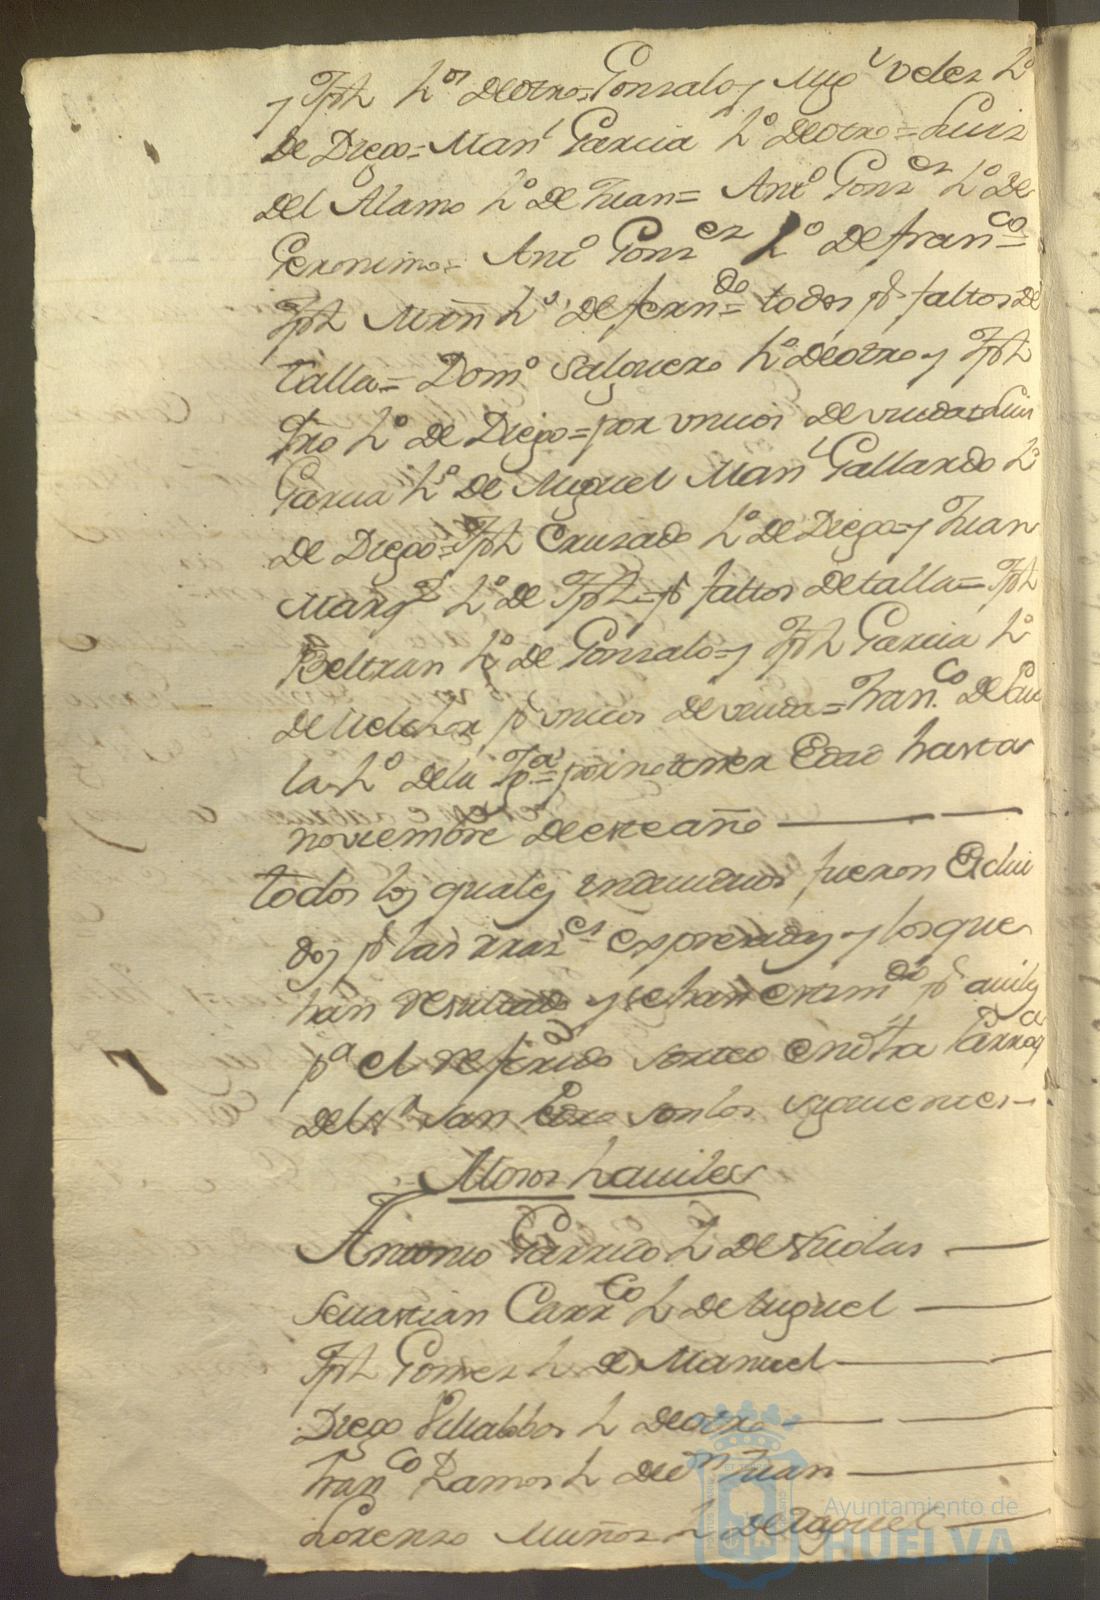 y Jph h.os de otro = Gonzalo y Mig.l Velez h.o
de Diego = Man.l Garcia h.o de otro = Luis
del Alamo h.o de Juan = Ant.o Gonz.ez h.o de
Geronimo = Ant.o Gonz.ez h.o de fran.co =
Jph Mrñ h.o de fern.do = todos p.r faltos de
talla = Dom.o Salguero h.o de otro y Jph
h.o de Diego = por unicos de viuda = Luis
Garcia h.o de Miguel Man.l Gallardo h.o
de Diego = Jph Cruzado h.o de Diego = y Juan
Marq.z h.o de Jph = p.r faltos de talla = Jph
Beltran h.o de Gonzalo = y Jph Garcia h.o
de Melchor p.r unicos de viuda = Fran.co de
la h.o de la por no tener Edad hasta
noviembre de este año
todos los quales individuos fueron Exclui
dos p.r las rraz.es expresadas y los que
han resultado y se han exam.do p.r aviles
p.a el referido sorteo en nrâ Parroq.a
del S.r San Pedro son los siguientes
Mosos haviles
Antonio Garrido h de Nicolas
Sevastian Carr.co h de Miguel
Jph Gomez h de Manuel
Diego Villalobos h de otro
Fran.co Ramos h de d.n Juan
Lorenzo Muñoz h de Miguel
Ayuntamiento de
HUELVA